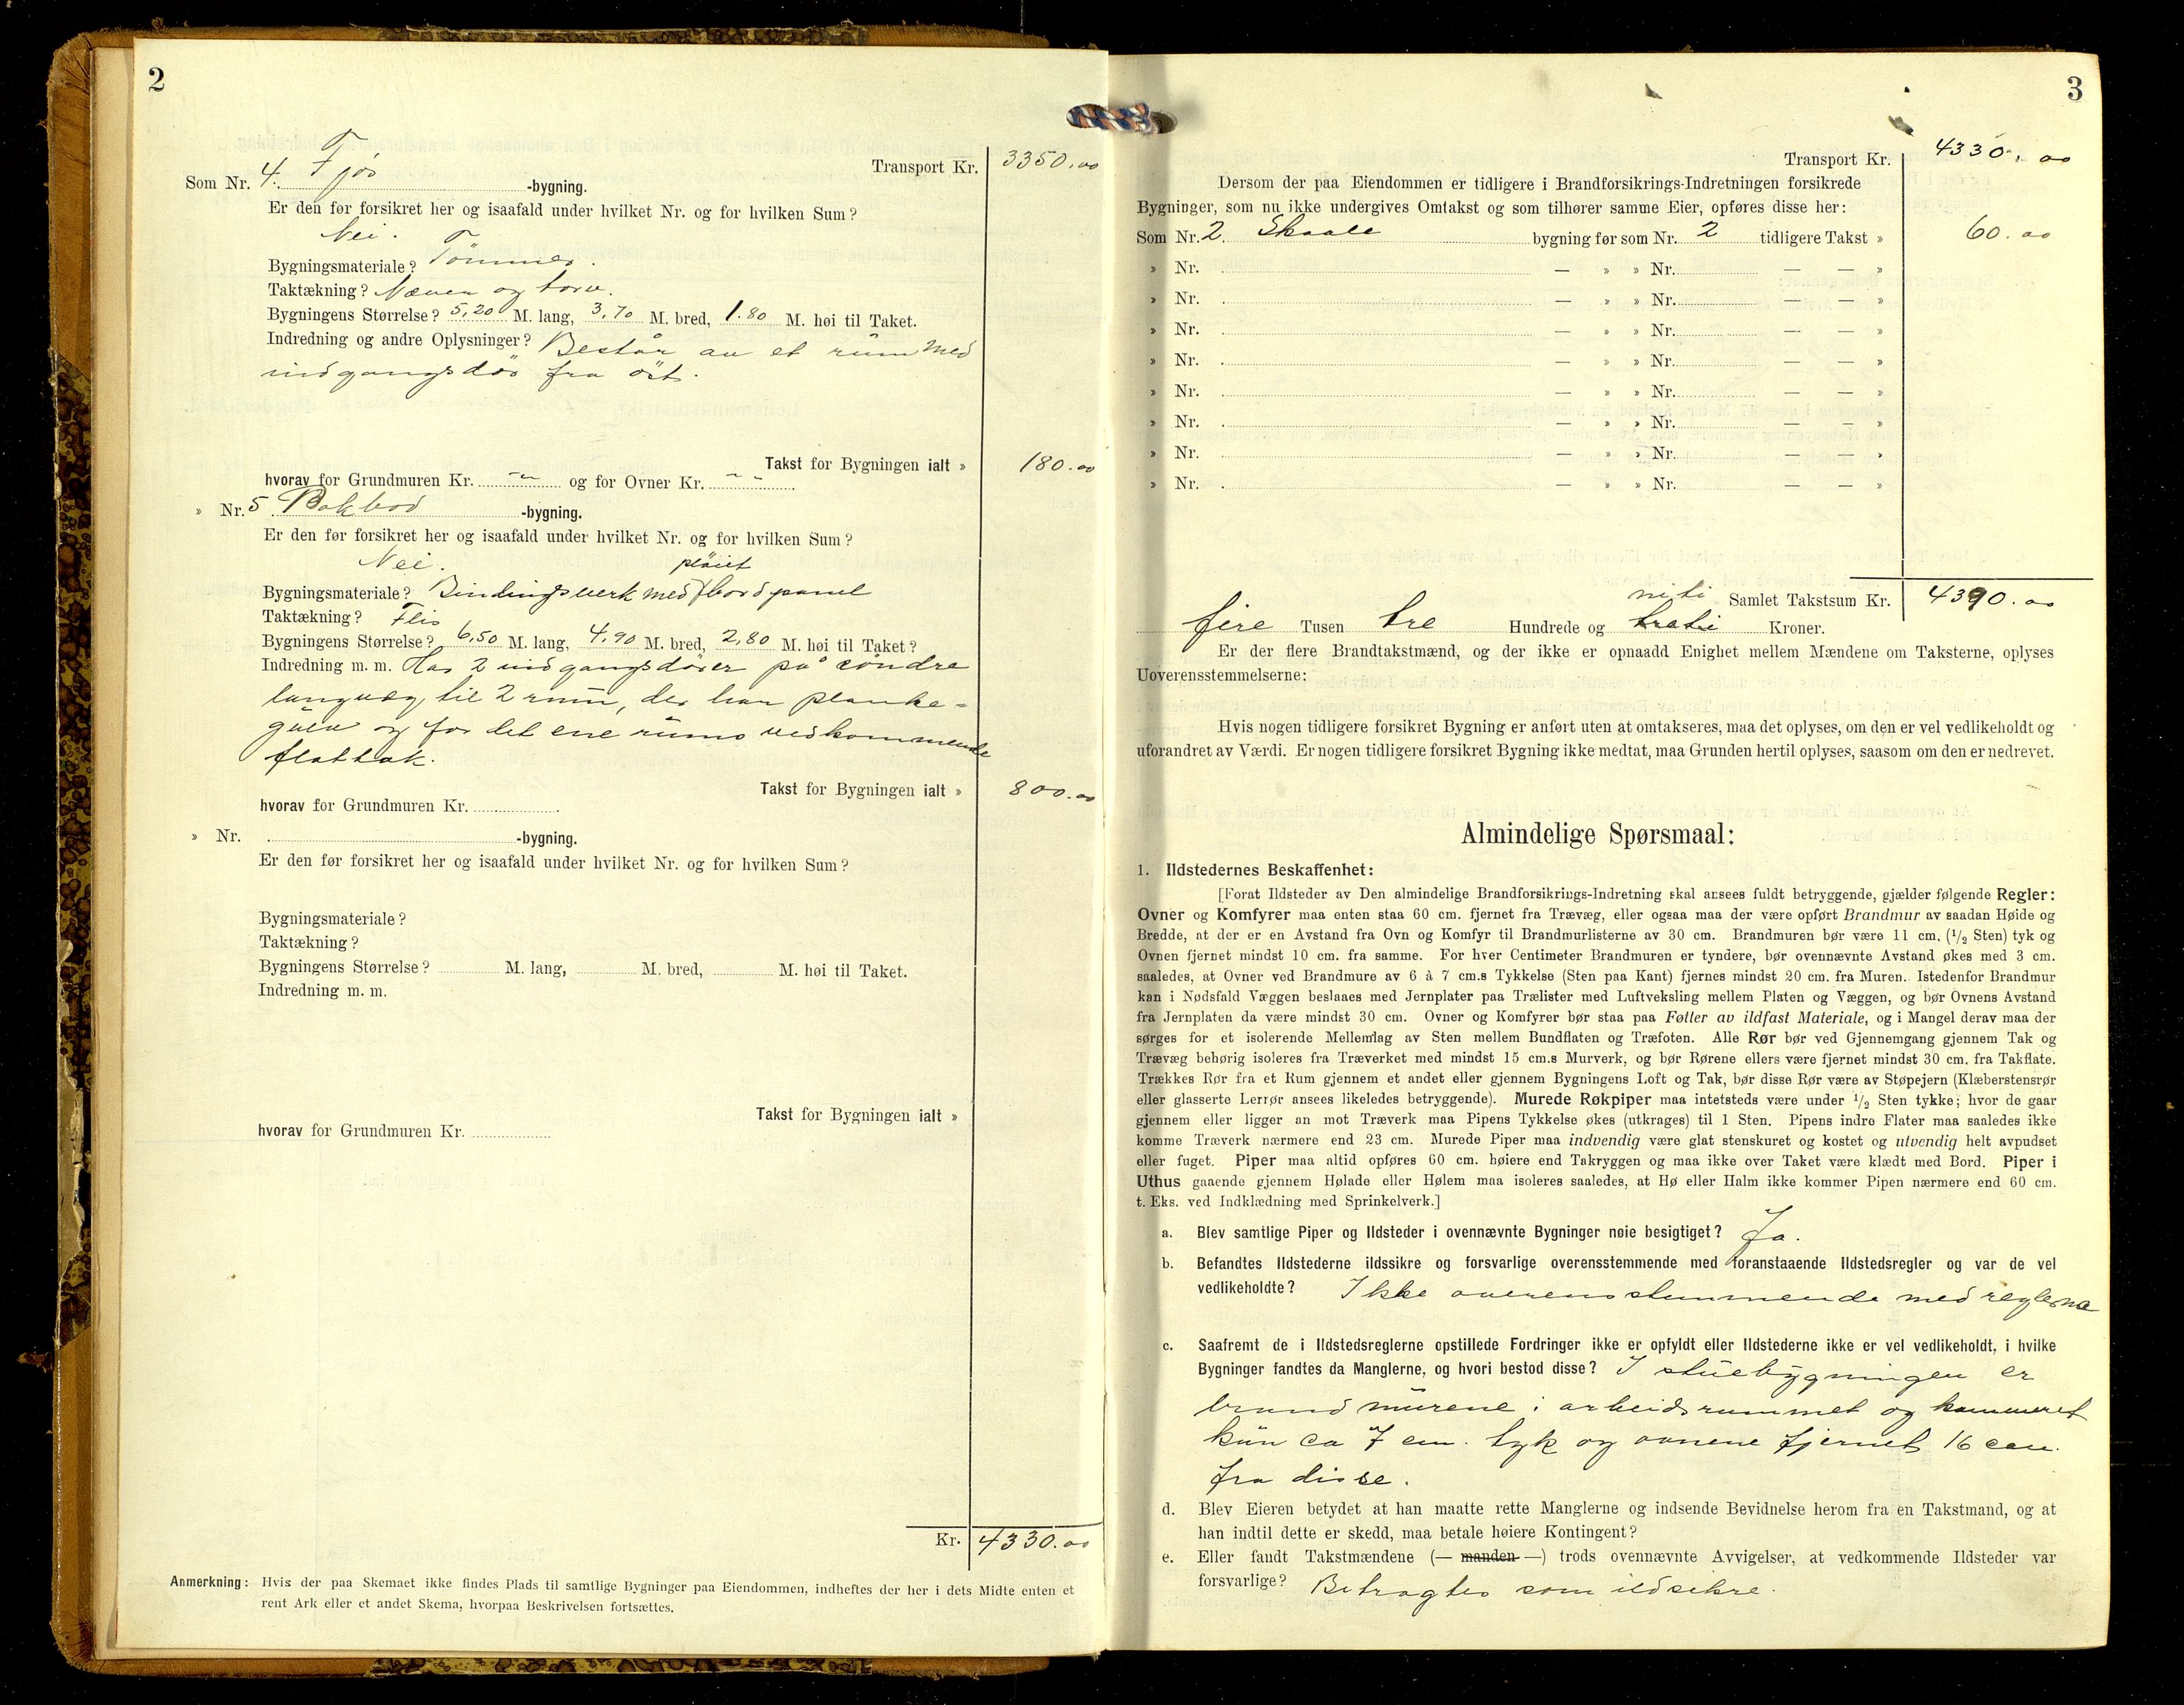 2
Transport Kr. 3350.00
Som Nr. 4. Fjøs -bygning.
Er den før forsikret her og isaafald under hvilket Nr. og for hvilken Sum?
Nei.
Bygningsmateriale? Tømmer.
Taktækning? Næver og torv.
Bygningens Størrelse? 5,20 M. lang, 3,70 M. bred, 1.80 M. høi til Taket.
Indredning og andre Oplysninger? Består av et rum med
indgangsdør fra øst.
Takst for Bygningen ialt » 180.00
hvorav for Grundmuren Kr. -"- og for Ovner Kr. -"-
» Nr. 5. Bakbod -bygning.
Er den før forsikret her og isaafald under hvilket Nr. og for hvilken Sum?
Nei. pløiet
Bygningsmateriale? Bindingsverk med bordpanel
Taktækning? Flis
Bygningens Størrelse? 6,50 M. lang, 4,90 M. bred, 2,80 M. høi til Taket?
Indredning m. m. Har 2 indgangsdører på søndre
langvæg til 2 rum, der har planke-
gulv og for det ene rums vedkommende
flattak.
Takst for Bygningen ialt » 800.00
hvorav for Grundmuren Kr.
» Nr. -bygning.
Er den før forsikret her og isaafald under hvilket Nr. og for hvilken Sum?
Bygningsmateriale?
Taktækning?
Bygningens Størrelse? M. lang, M. bred, M. høi til Taket.
Indredning m. m.
Takst for Bygningen ialt »
hvorav for Grundmuren Kr.
Kr. 4330.00
Anmerkning: Hvis der paa Skemaet ikke findes Plads til samtlige Bygninger paa Eiendommen, indheftes der her i dets Midte enten et
rent Ark eller et andet Skema, hvorpaa Beskrivelsen fortsættes.
3
Transport Kr. 4330.00
Dersom der paa Eiendommen er tidligere i Brandforsikrings-Indretningen forsikrede
Bygninger, som nu ikke undergives Omtakst og som tilhører samme Eier, opføres disse her:
Som Nr. 2. Skaale bygning før som Nr. 2 tidligere Takst » 60.00
» Nr. — » » Nr. — — »
» Nr. — » » Nr. — — »
» Nr. — » » Nr. — — »
» Nr. — » » Nr. — — »
» Nr. — » » Nr. — — »
» Nr. — » » Nr. — — »
» Nr. — » » Nr. — — »
» Nr. — » » Nr. — — »
niti Samlet Takstsum Kr. 4390.00
fire Tusen tre Hundrede og treti Kroner.
Er der flere Brandtakstmænd, og der ikke er opnaadd Enighet mellem Mændene om Taksterne, oplyses
Uoverensstemmelserne:
Hvis nogen tidligere forsikret Bygning er anført uten at omtakseres, maa det oplyses, om den er vel vedlikeholdt og
uforandret av Værdi. Er nogen tidligere forsikret Bygning ikke medtat, maa Grunden hertil oplyses, saasom om den er nedrevet.
Almindelige Spørsmaal:
1. Ildstedernes Beskaffenhet:
[Forat Ildsteder av Den almindelige Brandforsikrings-Indretning skal ansees fuldt betryggende, gjælder følgende Regler:
Ovner og Komfyrer maa enten staa 60 cm. fjernet fra Trævæg, eller ogsaa maa der være opført Brandmur av saadan Høide og
Bredde, at der er en Avstand fra Ovn og Komfyr til Brandmurlisterne av 30 cm. Brandmuren bør være 11 cm. (1/2 Sten) tyk og
Ovnen fjernet mindst 10 cm. fra samme. For hver Centimeter Brandmuren er tyndere, bør ovennævnte Avstand økes med 3 cm.
saaledes, at Ovner ved Brandmure av 6 à 7 cm.s Tykkelse (Sten paa Kant) fjernes mindst 20 cm. fra Muren. Istedenfor Brandmur
kan i Nødsfald Væggen beslaaes med Jernplater paa Trælister med Luftveksling mellem Platen og Væggen, og bør Ovnens Avstand
fra Jernplaten da være mindst 30 cm. Ovner og Komfyrer bør staa paa Føtter av ildfast Materiale, og i Mangel derav maa der
sørges for et isolerende Mellemlag av Sten mellem Bundflaten og Træfoten. Alle Rør bør ved Gjennemgang gjennem Tak og
Trævæg behørig isoleres fra Træverket med mindst 15 cm.s Murverk, og bør Rørene ellers være fjernet mindst 30 cm. fra Takflate.
Trækkes Rør fra et Rum gjennem et andet eller gjennem Bygningens Loft og Tak, bør disse Rør være av Støpejern (Klæberstensrør
eller glasserte Lerrør ansees likeledes betryggende). Murede Røkpiper maa intetsteds være under 1/2 Sten tykke; hvor de gaar
gjennem eller ligger an mot Træverk maa Pipens Tykkelse økes (utkrages) til 1 Sten. Pipens indre Flater maa saaledes ikke
komme Træverk nærmere end 23 cm. Murede Piper maa indvendig være glat stenskuret og kostet og utvendig helt avpudset
eller fuget. Piper maa altid opføres 60 cm. høiere end Takryggen og maa ikke over Taket være klædt med Bord. Piper i
Uthus gaaende gjennem Hølade eller Hølem maa isoleres saaledes, at Hø eller Halm ikke kommer Pipen nærmere end 60 cm.
t. Eks. ved Indklædning med Sprinkelverk.]
a. Blev samtlige Piper og Ildsteder i ovennævnte Bygninger nøie besigtiget? Ja.
b. Befandtes Ildstederne ildssikre og forsvarlige overensstemmende med foranstaaende Ildstedsregler og var de vel
vedlikeholdte? Ikke overensstemmende med reglerne
c. Saafremt de i Ildstedsreglerne opstillede Fordringer ikke er opfyldt eller Ildstederne ikke er vel vedlikeholdt, i hvilke
Bygninger fandtes da Manglerne, og hvori bestod disse? I stuebygningen er
brandmurene i arbeidsrummet og kammeret
kun ca 7 cm. tyk og ovnene fjernet 16 cm.
fra disse.
d. Blev Eieren betydet at han maatte rette Manglerne og indsende Bevidnelse herom fra en Takstmand, og at
han indtil dette er skedd, maa betale høiere Kontingent?
e. Eller fandt Takstmændene (— manden —) trods ovennævnte Avvigelser, at vedkommende Ildsteder var
forsvarlige? Betragtes som ildsikre.